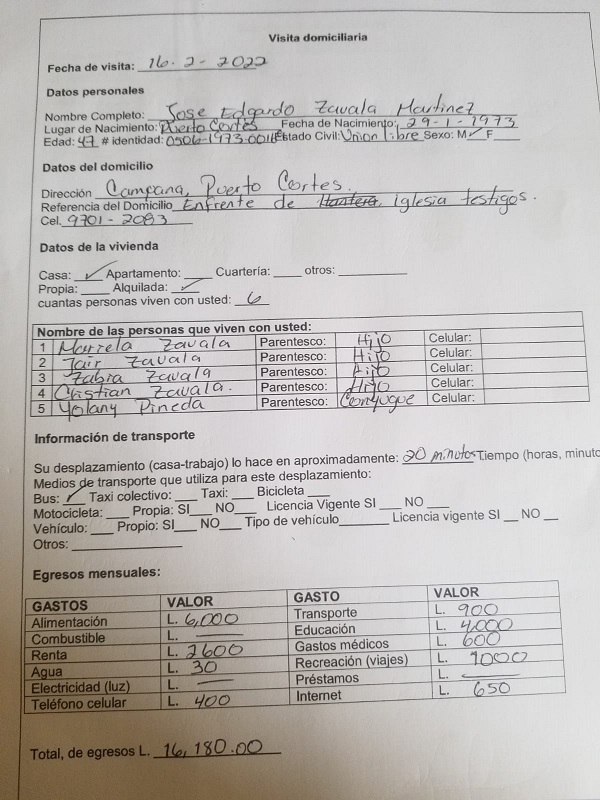 Visita domiciliaria
Fecha de visita: 16-2-2022
Datos personales
Nombre Completo: Jose Edgardo Zavala Martinez
Lugar de Nacimiento: Puerto Cortes Fecha de Nacimiento: 29-1-1973
Edad: 47 # identidad: 0506-1973-0011 Estado Civil: Union libre Sexo: M ✓ F
Datos del domicilio
Dirección Campana, Puerto Cortes.
Referencia del Domicilio Enfrente de Iglesia testigos.
Cel. 9701-2083
Datos de la vivienda
Casa: ✓ Apartamento: ____ Cuartería: ____ otros: ____
Propia: ____ Alquilada: ✓
cuantas personas viven con usted: 6
Nombre de las personas que viven con usted:
1 Marrela Zavala Parentesco: Hijo Celular:
2 Jair Zavala Parentesco: Hijo Celular:
3 Zabra Zavala Parentesco: Hijo Celular:
4 Cristian Zavala. Parentesco: Hijo Celular:
5 Yolany Pineda Parentesco: Conyugue Celular:
Información de transporte
Su desplazamiento (casa-trabajo) lo hace en aproximadamente: 20 minutos Tiempo (horas, minuto
Medios de transporte que utiliza para este desplazamiento:
Bus: ✓ Taxi colectivo: ____ Taxi: ____ Bicicleta ____
Motocicleta: ____ Propia: SI____ NO____ Licencia Vigente SI ____ NO ____
Vehículo: ____ Propio: SI____ NO____ Tipo de vehículo____ Licencia vigente SI __ NO __
Otros: ____
Egresos mensuales:
GASTOS VALOR GASTO VALOR
Alimentación L. 6,000 Transporte L. 900
Combustible L. — Educación L. 4,000
Renta L. 2600 Gastos médicos L. 600
Agua L. 30 Recreación (viajes) L. 1000
Electricidad (luz) L. — Préstamos L. —
Teléfono celular L. 400 Internet L. 650
Total, de egresos L. 16,180.00